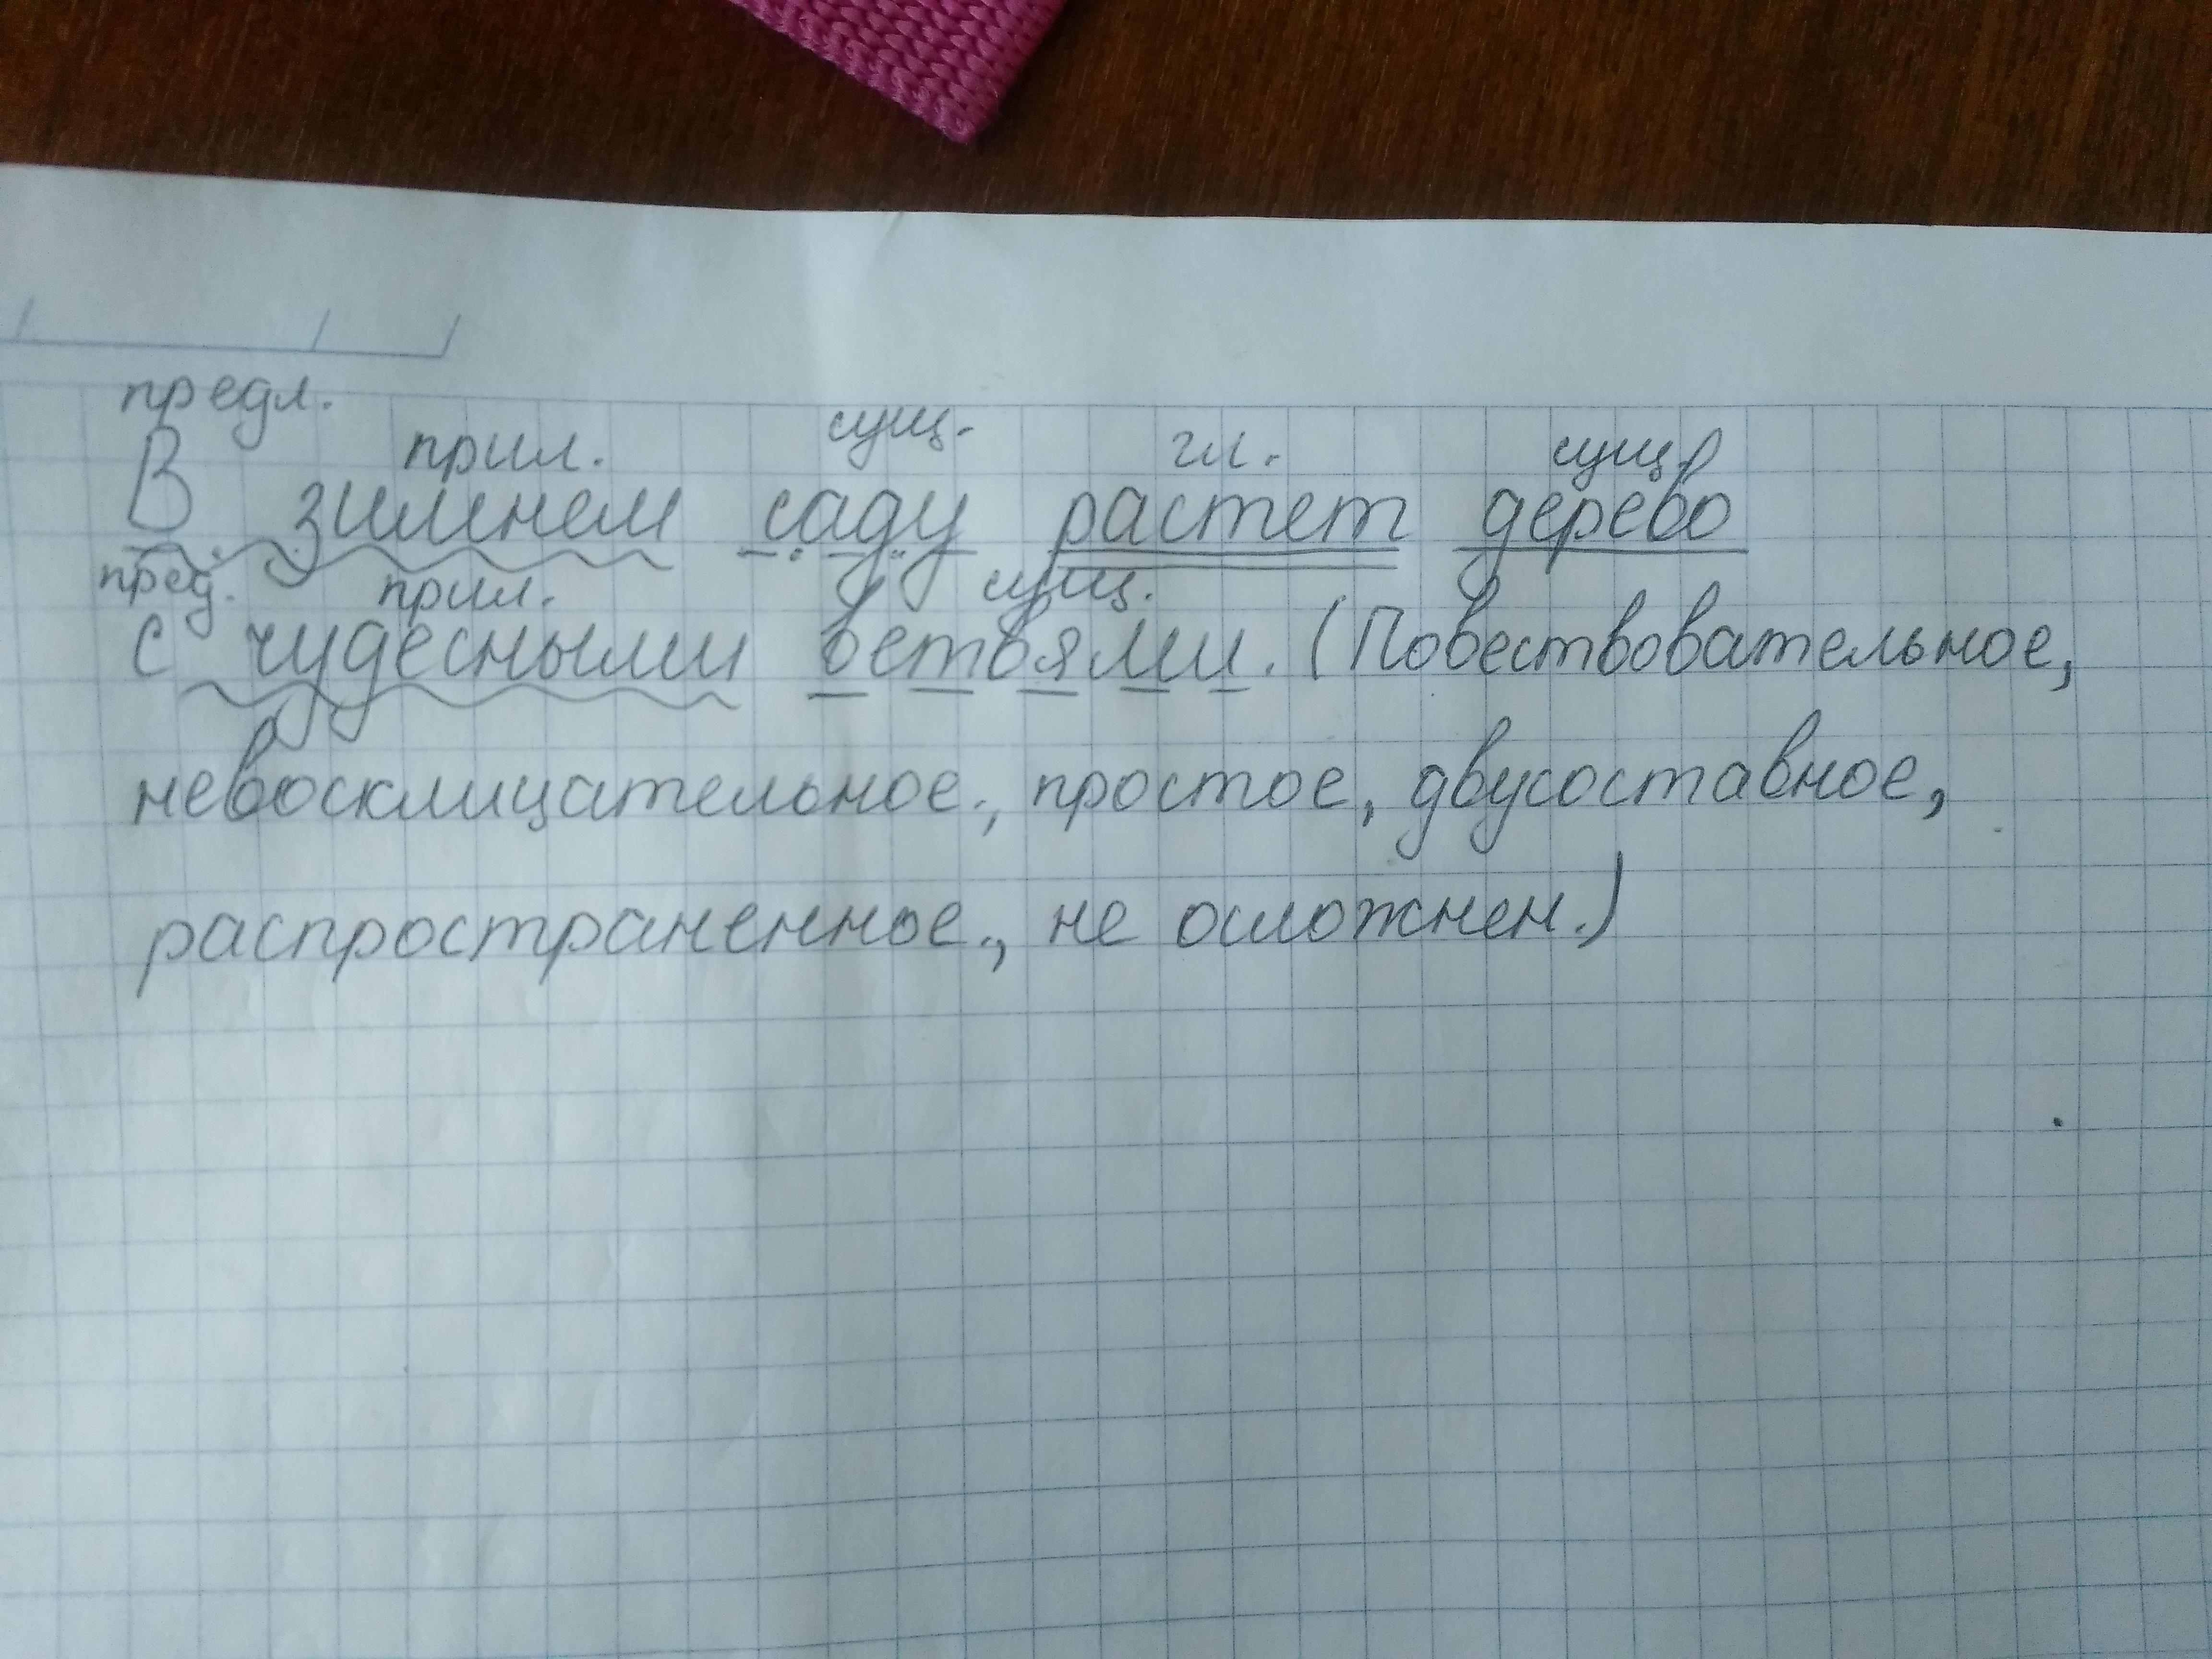 предл.
прил. сущ. гл. сущ.
В зимнем саду растет дерево
пред. прил. сущ.
с чудесными ветвями. (Повествовательное,
невосклицательное., простое, двусоставное,
распространенное., не осложнен.)